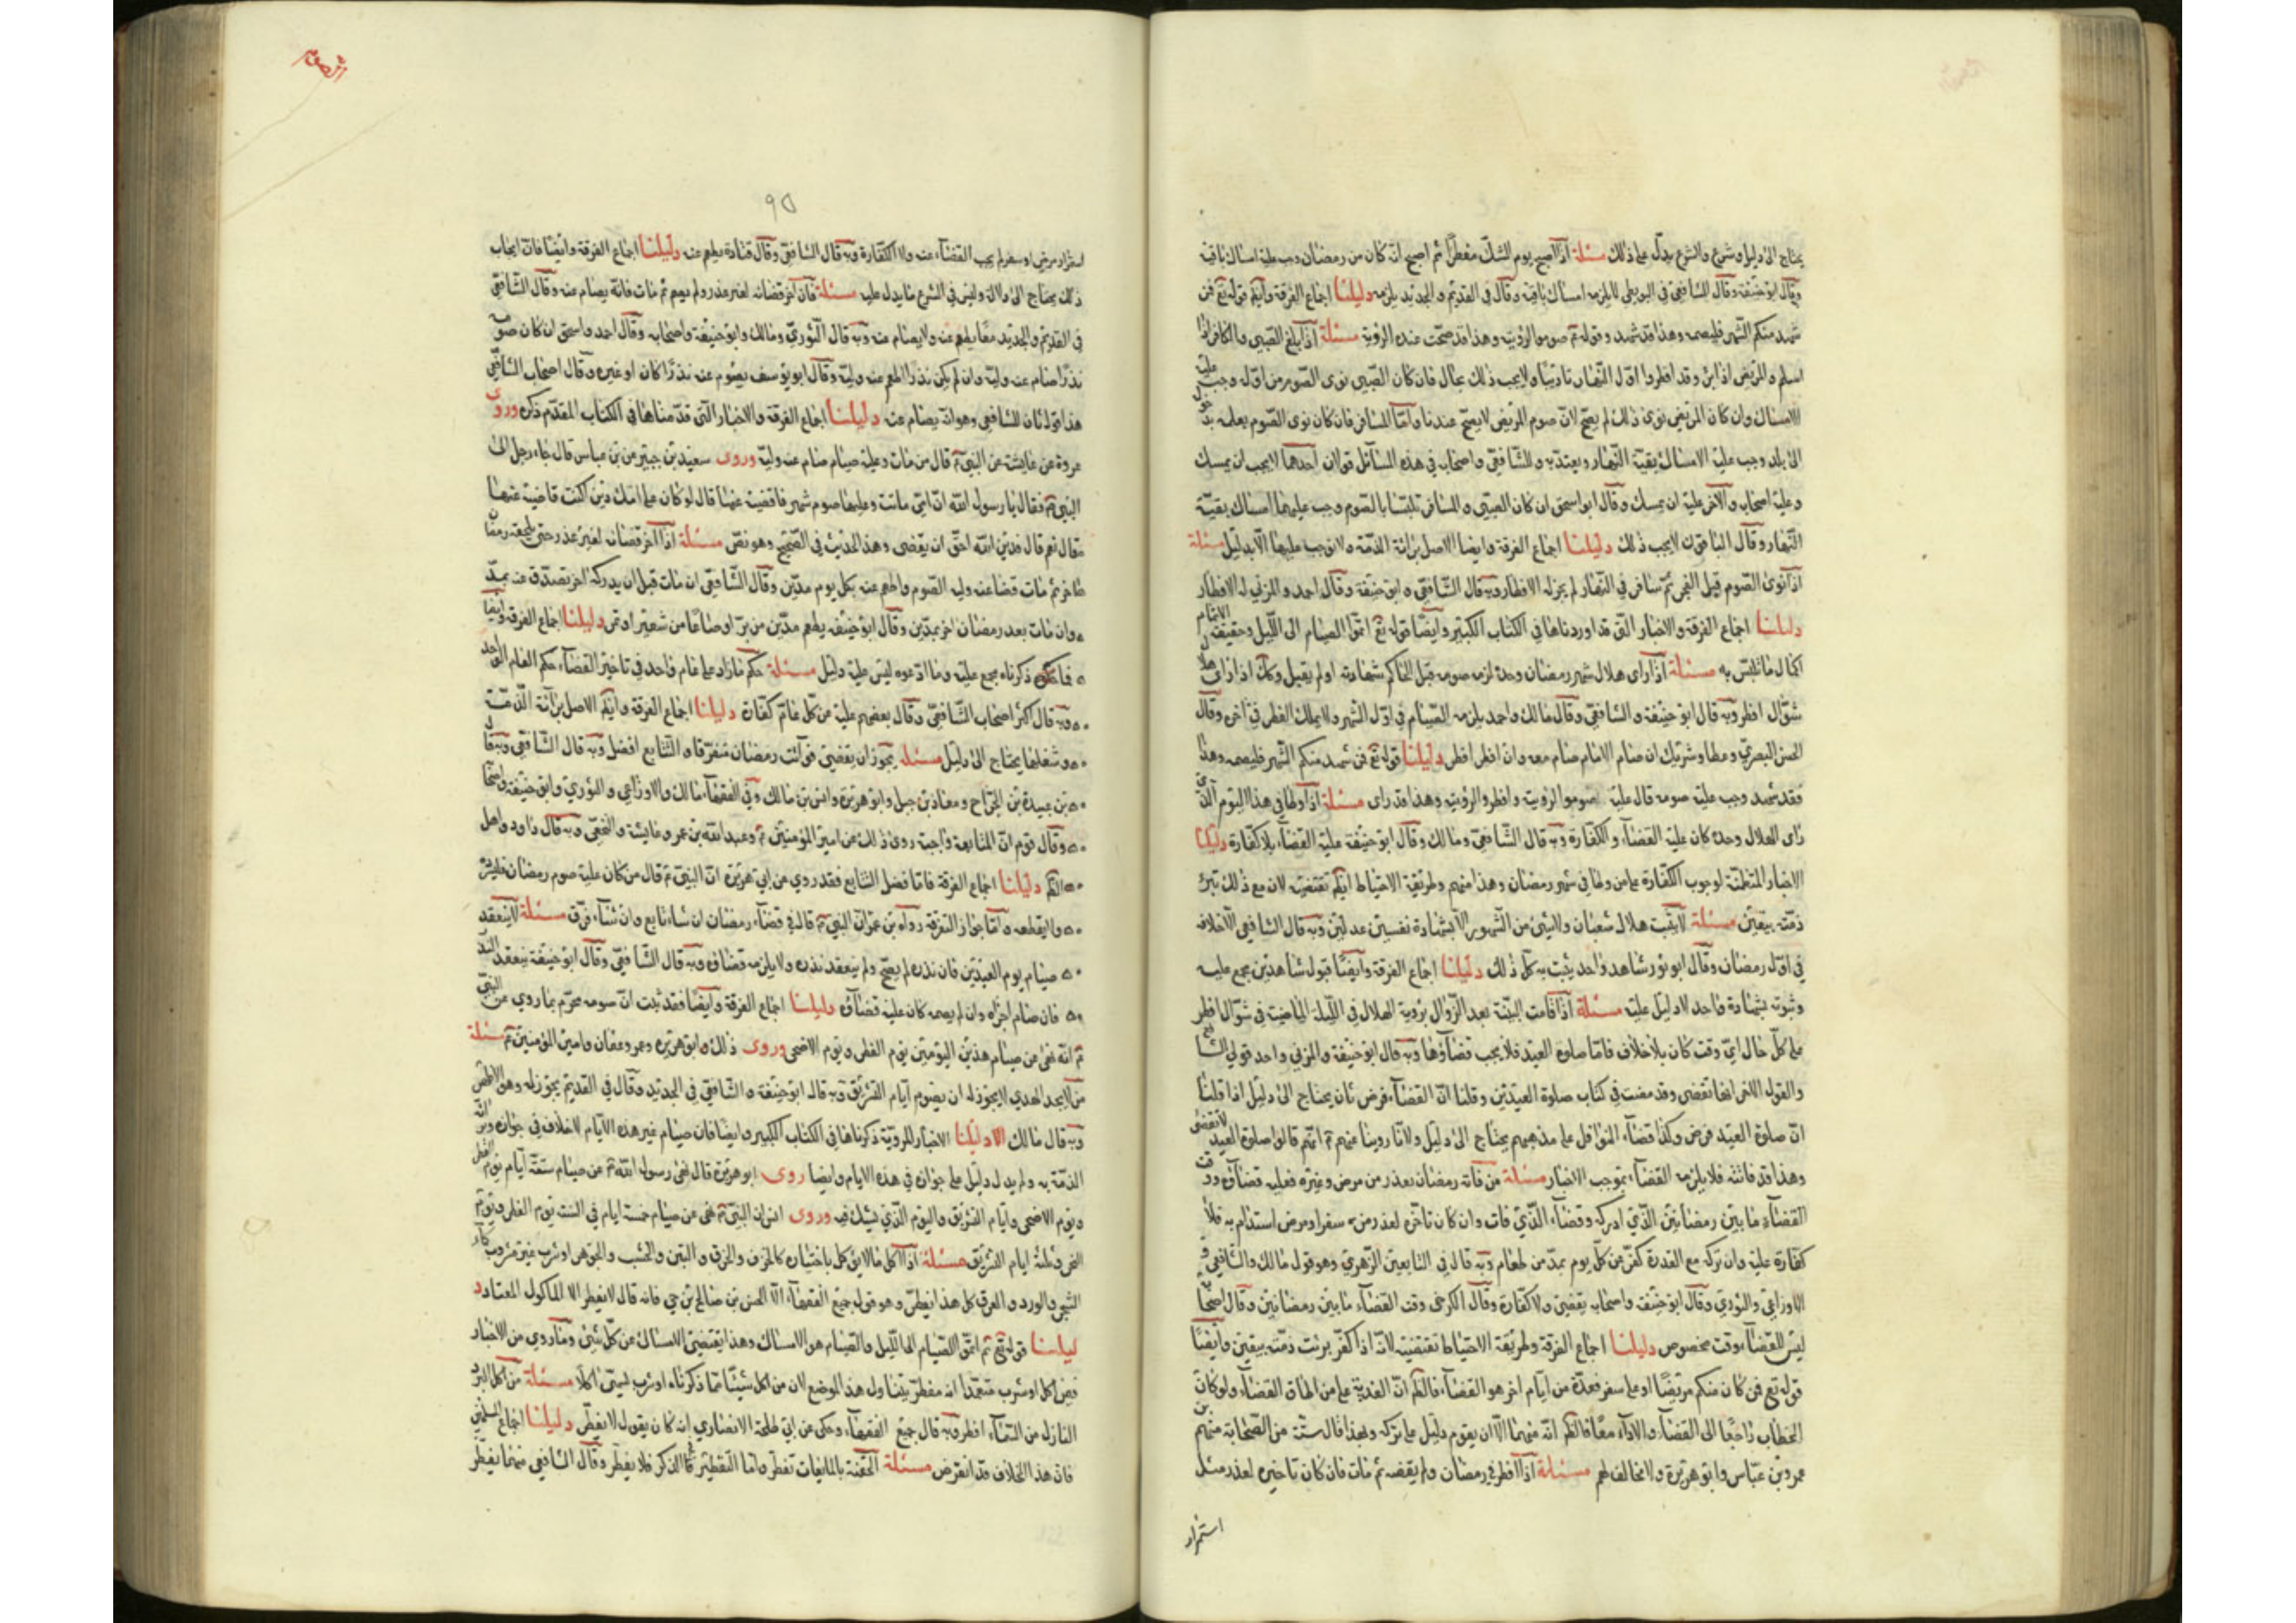 يحتاج الى دليل وشرع والشرع يدل على ذلك مسئلة اذا اصبح يوم الشك مفطرا ثم اصبح انه كان من رمضان وجب عليه امساك باقيه
وبه قال ابو حنيفة وقال الشافعي في البويطي لا يلزمه امساك باقيه وقال في القديم والجديد يلزمه دليلنا اجماع الفرقة وايضا قوله تع فمن
شهد منكم الشهر فليصمه وهذا قد شهد وقوله ع صوموا لرؤيته وهذا قد صحت عنده الرؤية مسئلة اذا بلغ الصبي والكافر اذا
اسلم والمريض اذا برئ وقد افطروا اول النهار تاديبا ولا يجب ذلك بحال فان كان الصبي نوى الصوم من اوله وجب عليه
الامساك وان كان المريض نوى ذلك لم يصح لان صوم المريض لا يصح عندنا واما المسافر فان كان نوى الصوم
الى بلد وجب عليه الامساك بقية النهار ويعتد به وللشافعي واصحابه في هذه المسائل قولان احدهما لا يجب ان يمسك
وعليه اصحابه والاخر عليه ان يمسك وقال ابو اسحق ان كان الصبي والمسافر تلبسا بالصوم وجب عليهما امساك بقية
النهار وقال الباقون لا يجب ذلك دليلنا اجماع الفرقة وايضا الاصل برائة الذمة ولا نوجب عليها الا بدليل مسئلة
اذا نوى الصوم قبل الفجر ثم سافر في النهار لم يجز له الافطار وبه قال الشافعي وابو حنيفة وقال احمد والمزني له الافطار
دليلنا اجماع الفرقة والاخبار التي قد اوردناها في الكتاب الكبير وايضا قوله تع اتموا الصيام الى الليل وحقيقة الاتمام
اكمال ما تلبس به مسئلة اذا راى هلال شهر رمضان وحده لزمه صومه قبل الحاكم شهادته او لم يقبل وكك اذا راى هلا
شوال افطر وبه قال ابو حنيفة والشافعي وقال مالك واحمد يلزمه الصيام في اول الشهر ولا يملك الفطر في اخره وقال
الحسن البصري وعطا وشريك ان صام الامام صام معه وان افطر افطر دليلنا قوله تع فمن شهد منكم الشهر فليصمه وهذا
فقد شهد وجب عليه صومه قال عليه صوموا لرؤيته وافطروا لرؤيته وهذا قد راى مسئلة اذا وطا في هذا اليوم الذي
راى الهلال وحده كان عليه القضاء والكفارة وبه قال الشافعي ومالك وقال ابو حنيفة عليه القضاء بلا كفارة دليلنا
الاخبار المتضمنة لوجوب الكفارة على من وطا في شهر رمضان وهذا منهم وطريقة الاحتياط ايضا تقتضيه لان مع ذلك تبرئ
ذمته بيقين مسئلة لا يثبت هلال شعبان ولا شئ من الشهور الا بشهادة نفسين عدلين وبه قال الشافعي الا خلافه
في اول رمضان وقال ابو ثور شاهد واحد يثبت به كل ذلك دليلنا اجماع الفرقة وايضا قبول شاهدين مجمع عليه
وثبوته بشهادة واحد لا دليل عليه مسئلة اذا قامت البينة بعد الزوال برؤية الهلال في الليلة الماضية في شوال افطر
على كل حال اي وقت كان بلا خلاف فاما صلوة العيد فلا يجب قضاؤها وبه قال ابو حنيفة والمزني واحد قولي الشافعي
والقول الاخر انها تقضى وقد مضت في كتاب صلوة العيدين وقلنا ان القضاء فرض ثان يحتاج الى دليل اذا قلنا
ان صلوة العيد فرض وكذا قضاء النوافل على مذهبهم يحتاج الى دليل ولانا روينا عنهم ع انهم قالوا صلوة العيد لا تقضى
وهذا قد فاتته فلا يلزمه القضاء بموجب الاخبار مسئلة من فاته رمضان بعذر من مرض وغيره فعليه قضاؤه ووقت
القضاء ما بين رمضانين الذي ادركه وقضاء الذي فات وان كان تاخره لعذر من سفر او مرض استدام به فلا
كفارة عليه وان تركه مع القدرة كفر عن كل يوم بمد من طعام وبه قال في التابعين الزهري وهو قول مالك والشافعي و
الاوزاعي والثوري وقال ابو حنيفة واصحابه يقضي ولا كفارة وقال الكرخي وقت القضاء ما بين رمضانين وقال اصحابه
ليس للقضاء وقت مخصوص دليلنا اجماع الفرقة وطريقة الاحتياط تقتضيه لانه اذا كفر برئت ذمته بيقين وايضا
قوله تع فمن كان منكم مريضا او على سفر فعدة من ايام اخر هو القضاء فالكلام ان الفدية على من اطاق القضاء ولو كان
الخطاب راجعا الى القضاء والاداء معا فالظاهر انه منهما الا ان يقوم دليل على تركه وبهذا قال ستة من الصحابة منهم
عمر وبن عباس وابو هريرة ولا مخالف لهم مسئلة اذا افطر رمضان ولم يقضه ثم مات فان كان تاخيره لعذر مثل
استمرار
الصوم
٩٥
استمرار مرض او سفر لم يجب القضاء عنه ولا الكفارة وبه قال الشافعي وقال قتادة يطعم عنه دليلنا اجماع الفرقة وايضا فان ايجاب
ذلك يحتاج الى دلالة وليس في الشرع ما يدل عليه مسئلة فان اخر قضائه لغير عذر ولم يصم ثم مات فانه يصام عنه وقال الشافعي
في القديم والجديد معا يطعم عنه ولا يصام عنه وبه قال الثوري ومالك وابو حنيفة واصحابه وقال احمد واسحق ان كان صوم
نذر اصام عنه وليه وان لم يكن نذرا اطعم عنه وليه وقال ابو يوسف يصوم عنه نذرا كان او غيره وقال اصحاب الشافعي
هذا قول ثان للشافعي وهو انه يصام عنه دليلنا اجماع الفرقة والاخبار التي قدمناها في الكتاب المقدم ذكره وروى
عروة عن عايشة عن النبي ع قال من مات وعليه صيام صام عنه وليه وروى سعيد بن جبير من بن عباس قال جاء رجل الى
النبي ع فقال يا رسول الله ان امي ماتت وعليها صوم شهر فاقضيه عنها قال لو كان على امك دين اكنت قاضيه عنها
فقال نعم قال فدين الله احق ان يقضى وهذا الحديث في الصحيح وهو نص مسئلة اذا اخر قضائه لغير عذر حتى يلحقه رمضان
اخر ثم مات قضا عنه وليه الصوم واطعم عنه بكل يوم مدين وقال الشافعي ان مات قبل ان يدركه اخر تصدق عنه بمد
وان مات بعد رمضان اخر بمدين وقال ابو حنيفة يطعم مدين من بر او صاعا من شعير او تمر دليلنا اجماع الفرقة وايضا
فما ذكرناه مجمع عليه وما ادعوه ليس عليه دليل مسئلة حكم ما زاد على عام واحد في تاخير القضاء حكم العام الواحد
وبه قال اكثر اصحاب الشافعي وقال بعضهم عليه عن كل عام كفارة دليلنا اجماع الفرقة وايضا الاصل برائة الذمة
وشغلها يحتاج الى دليل مسئلة يجوز ان يقضي فوائت رمضان متفرقا والتتابع افضل وبه قال الشافعي وبه قال
بن عبيدة بن الجراح ومعاذ بن جبل وابو هريرة وانس بن مالك وفي الفقهاء مالك والاوزاعي والثوري وابو حنيفة واصحابه
وقال قوم ان المتابعة واجبة روى ذلك عن امير المؤمنين ع وعبد الله بن عمر وعايشة والنخعي وبه قال داود واهل
الظاهر دليلنا اجماع الفرقة فاما فضل التتابع فقد روي عن ابي هريرة ان النبي ع قال من كان عليه صوم رمضان فليسرده
ولا يقطعه واما جواز التفرقة رواه بن عمر ان النبي ع قال في قضاء رمضان ان شاء تابع وان شاء فرق مسئلة لا ينعقد
صيام يوم العيدين فان نذره لم يصح ولم ينعقد نذره ولا يلزمه قضاؤه وبه قال الشافعي وقال ابو حنيفة ينعقد النذر
فان صام اجزاه وان لم يصمه كان عليه قضاؤه دليلنا اجماع الفرقة وايضا فقد ثبت ان صومه محرم بما روي عن النبي
ع انه نهى عن صيام هذين اليومين يوم الفطر ويوم الاضحى وروى ذلك ابو هريرة وعمر وعثمان وامير المؤمنين ع مسئلة
من لا يجد الهدي لا يجوز له ان يصوم ايام التشريق وبه قال ابو حنيفة والشافعي في الجديد وقال في القديم يجوز له وهو الاظهر
وبه قال مالك دليلنا الاخبار المروية ذكرناها في الكتاب الكبير وايضا فان صيام غير هذه الايام لا خلاف في جوازه وبرائة
الذمة به ولم يدل دليل على جوازه في هذه الايام وايضا روى ابو هريرة قال نهى رسول الله ع عن صيام ستة ايام يوم الفطر
ويوم الاضحى وايام التشريق واليوم الذي يشك فيه وروى انس ان النبي ع نهى عن صيام خمسة ايام في السنة يوم الفطر ويوم
النحر وثلثة ايام التشريق مسئلة اذا اكل ما لا يؤكل باختياره كالخزف والخرق والتبن والخشب والجوهر او شرب غير مشروب كماء
الشجر والورد والعرق كل هذا يفطر وهو قول جميع الفقهاء الا الحسن بن صالح بن حي فانه قال لا يفطر الا الماكول المعتاد د
ليلنا قوله تع ثم اتموا الصيام الى الليل والصيام هو الامساك وهذا يقتضي الامساك عن كل شئ وما روي من الاخبار
فيمن اكل او شرب متعمدا انه مفطر يتناول هذا الموضع لان من اكل شيئا مما ذكرناه او شرب ليسمى اكلا مسئلة من اكل البرد
النازل من السماء افطر وبه قال جميع الفقهاء وحكى عن ابي طلحة الانصاري انه كان يقول لا يفطر دليلنا اجماع المسلمين
فان هذا الخلاف قد انقرض مسئلة الحقنة بالمايعات تفطر واما التقطير في الذكر فلا يفطر وقال الشافعي منهما يفطر